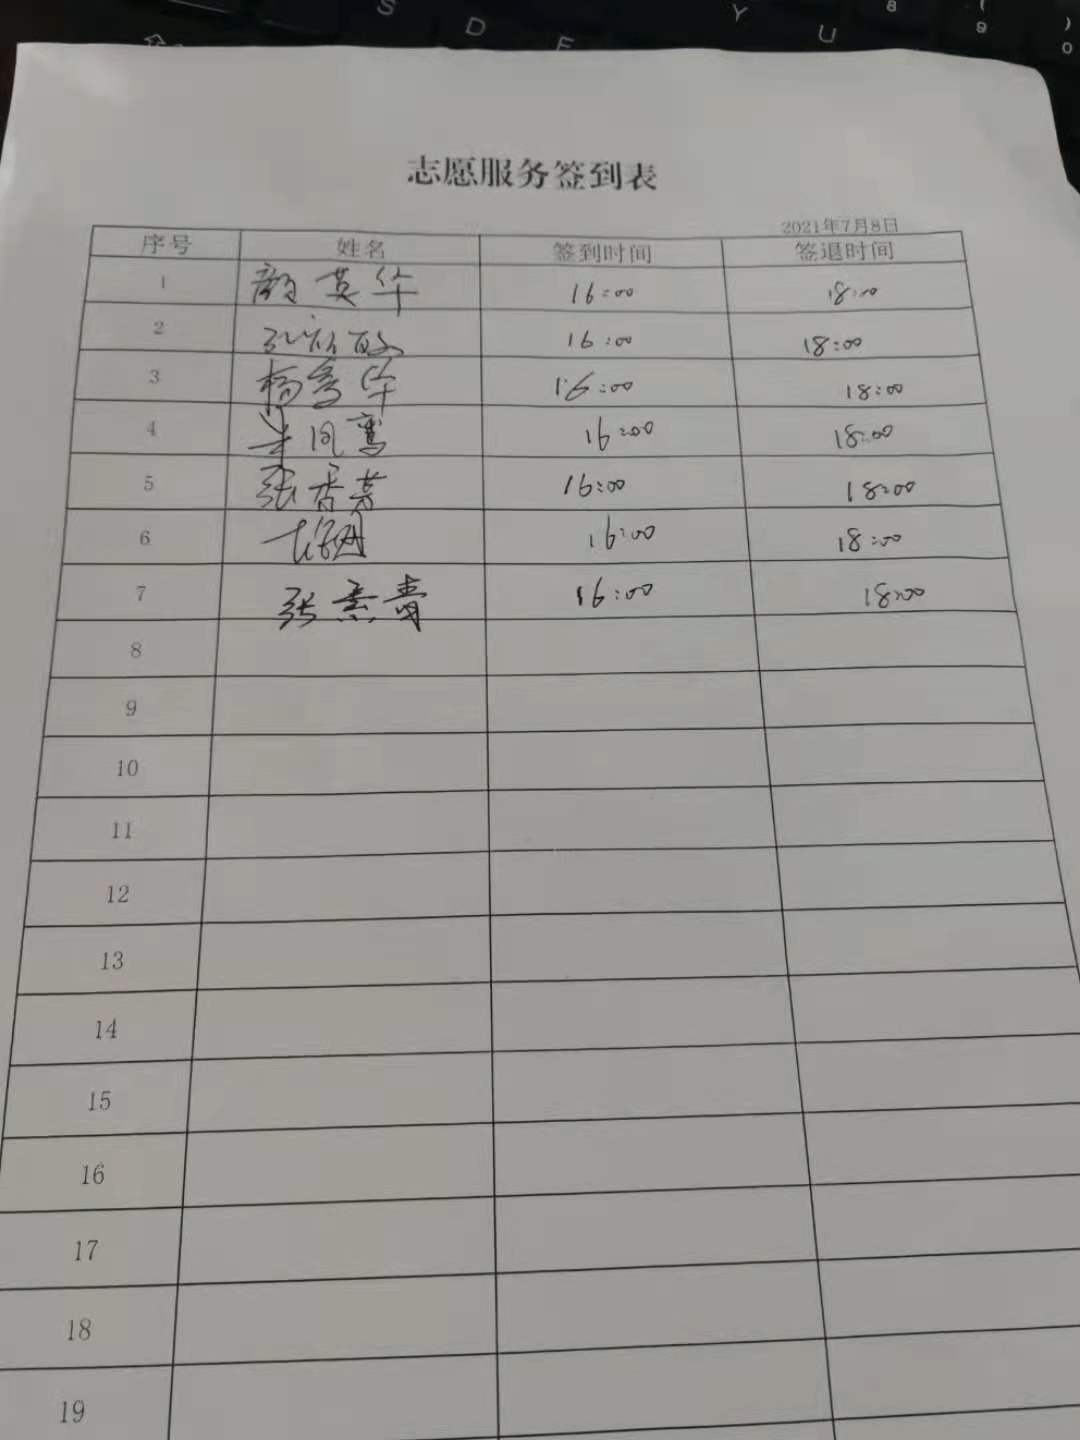 志愿服务签到表
2021年7月8日
序号 姓名 签到时间 签退时间
1 颜英华 16:00 18:00
2 16:00 18:00
3 杨秀华 16:00 18:00
4 凤鸾 16:00 18:00
5 张香芳 16:00 18:00
6 16:00 18:00
7 张素青 16:00 18:00
8
9
10
11
12
13
14
15
16
17
18
19